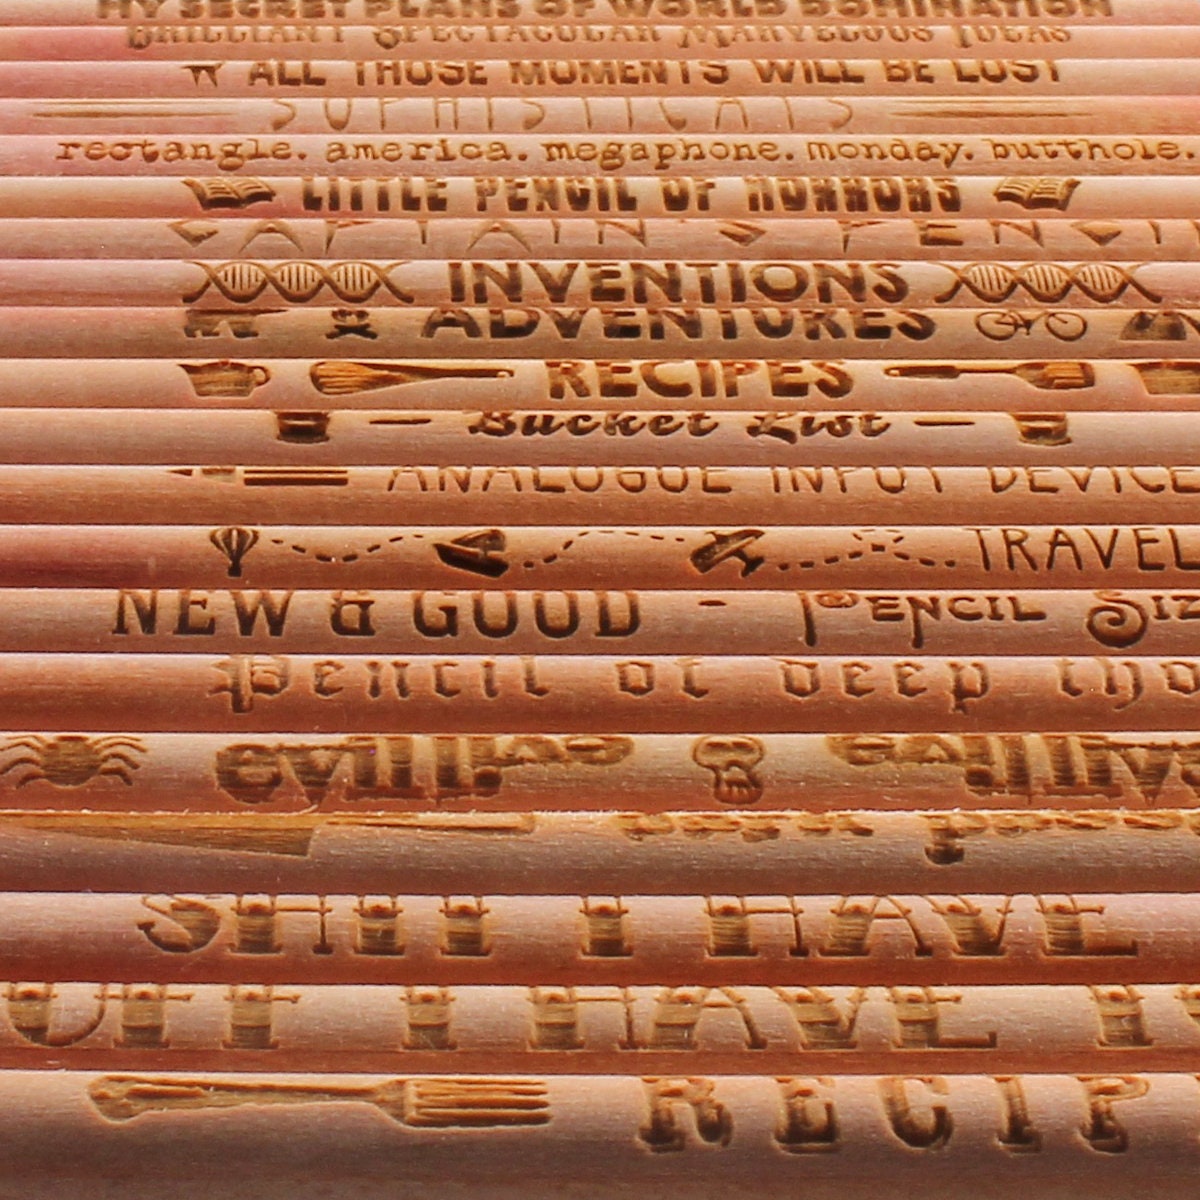 MY SECRET PLANS OF WORLD DOMINATION
BRILLIANT SPECTACULAR MARVELOUS IDEAS
ALL THOSE MOMENTS WILL BE LOST
SOPHISTICATS
rectangle. america. megaphone. monday. butthole.
LITTLE PENCIL OF HORRORS
CAPTAIN'S PEN
INVENTIONS
ADVENTURES
RECIPES
Bucket List
ANALOGUE INPUT DEVICE
TRAVEL
NEW & GOOD - PENCIL SIZ
Pencil of deep tho
SHIT I HAVE
I HAVE
RECIP